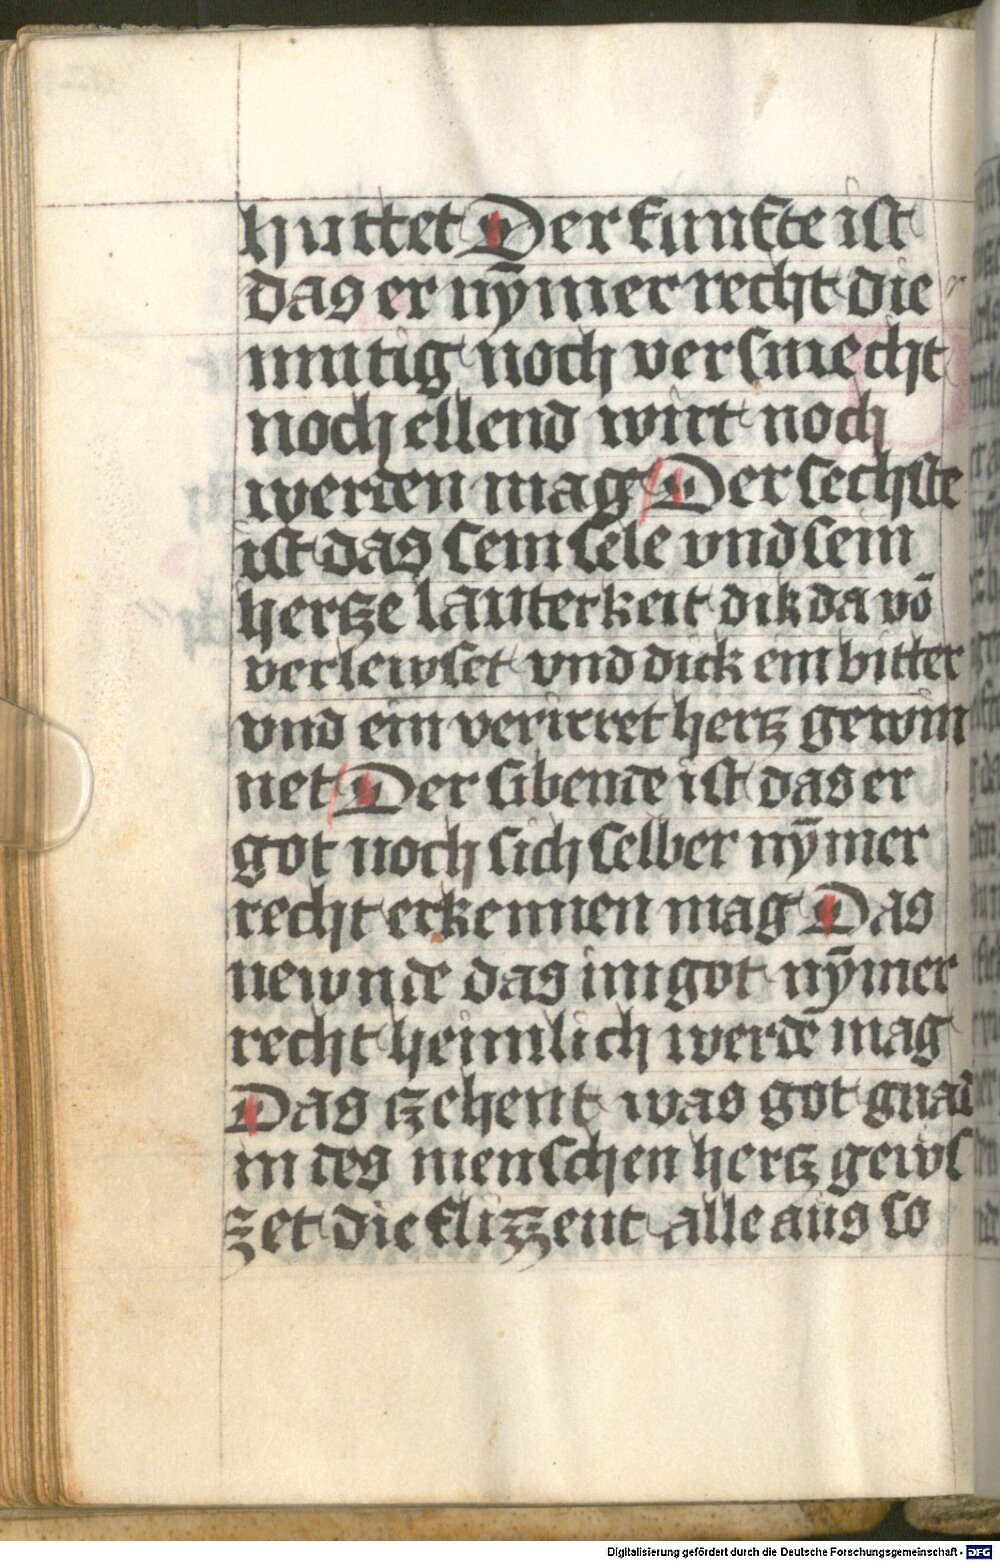 huttet Der funfte ist
das er nȳmer recht die
mutig noch versmecht
noch ellend wirt noch
werden mag Der sechste
ist das sein sele vnd sein
hertze lauterkeit dik da vō
verlewset vnd dick ein bitter
vnd ein verirret hertz gewin
net Der sibende ist das er
got noch sich selber nȳmer
recht erkennen mag Das
newnde das im got nȳmer
recht heimlich werdē mag
Das zehent was got gnad
in des menschen hertz gews
zet die flizzent alle aus so
Digitalisierung gefördert durch die Deutsche Forschungsgemeinschaft - DFG